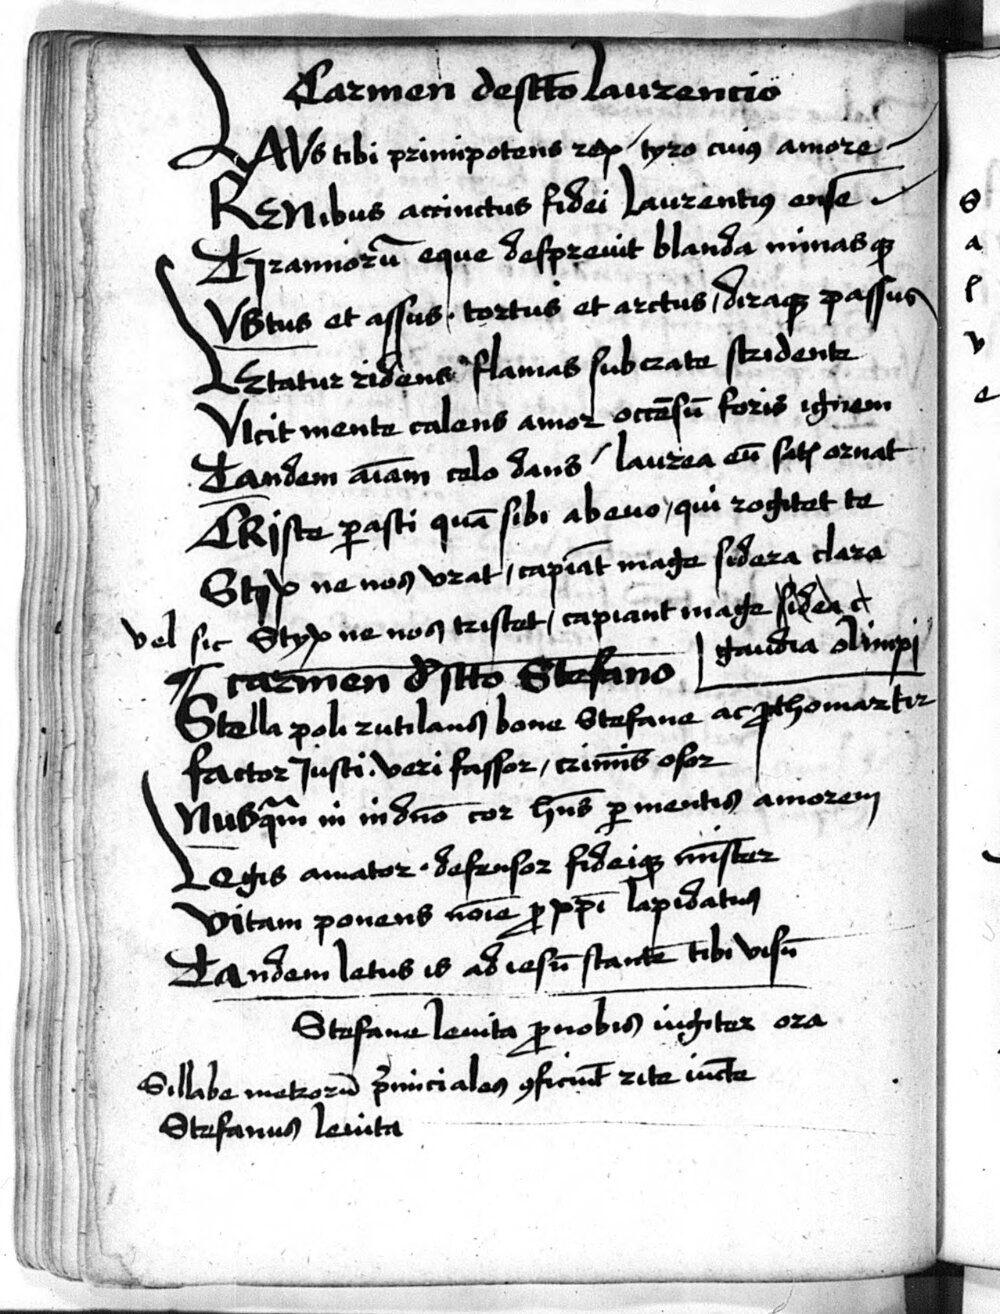 Carmen de sctō Laurencio
LAVs tibi primipotens rex / tyro cuiꝰ amore
RENibus accinctus fidei Laurentiꝰ ense
TIranniorū eque despreuit blanda minasqꝫ
VStus et assus · tortus et arctus / diraqꝫ passus
LEtatur ridens flamas sub crate stridente
VIcit mente calens amor occēsū foris ignem
Tandem aīam celo dans / laurea eū ornat
CRIste ꝑasti quā sibi ab euo / qui rogitet te
Styx ne nos vrat / capiāt mage sidera clara
vel sic Styx ne nos tristet / capiant mage sidea c
gaudia olimpi
¶ carmen d sctto Stefano
Stella poli rutilans bone Stefane ac ꝓthomartir
factor Iusti · veri fassor / criminis osor
Nusqm̄ in indnō cor hn̄s ꝑ mentis amorem
Legis amator · defensor fideiqꝫ minister
Vitam ponens noīe ꝓ xpī lapidatus
Tandem letus is ad iesū stantē tibi visū
Stefane leuita ꝓ nobis iugiter ora
Sillabe metrorū prīnciales ꝯficiūt rite iuncte
Stefanus leuita
S
a
l
v
e